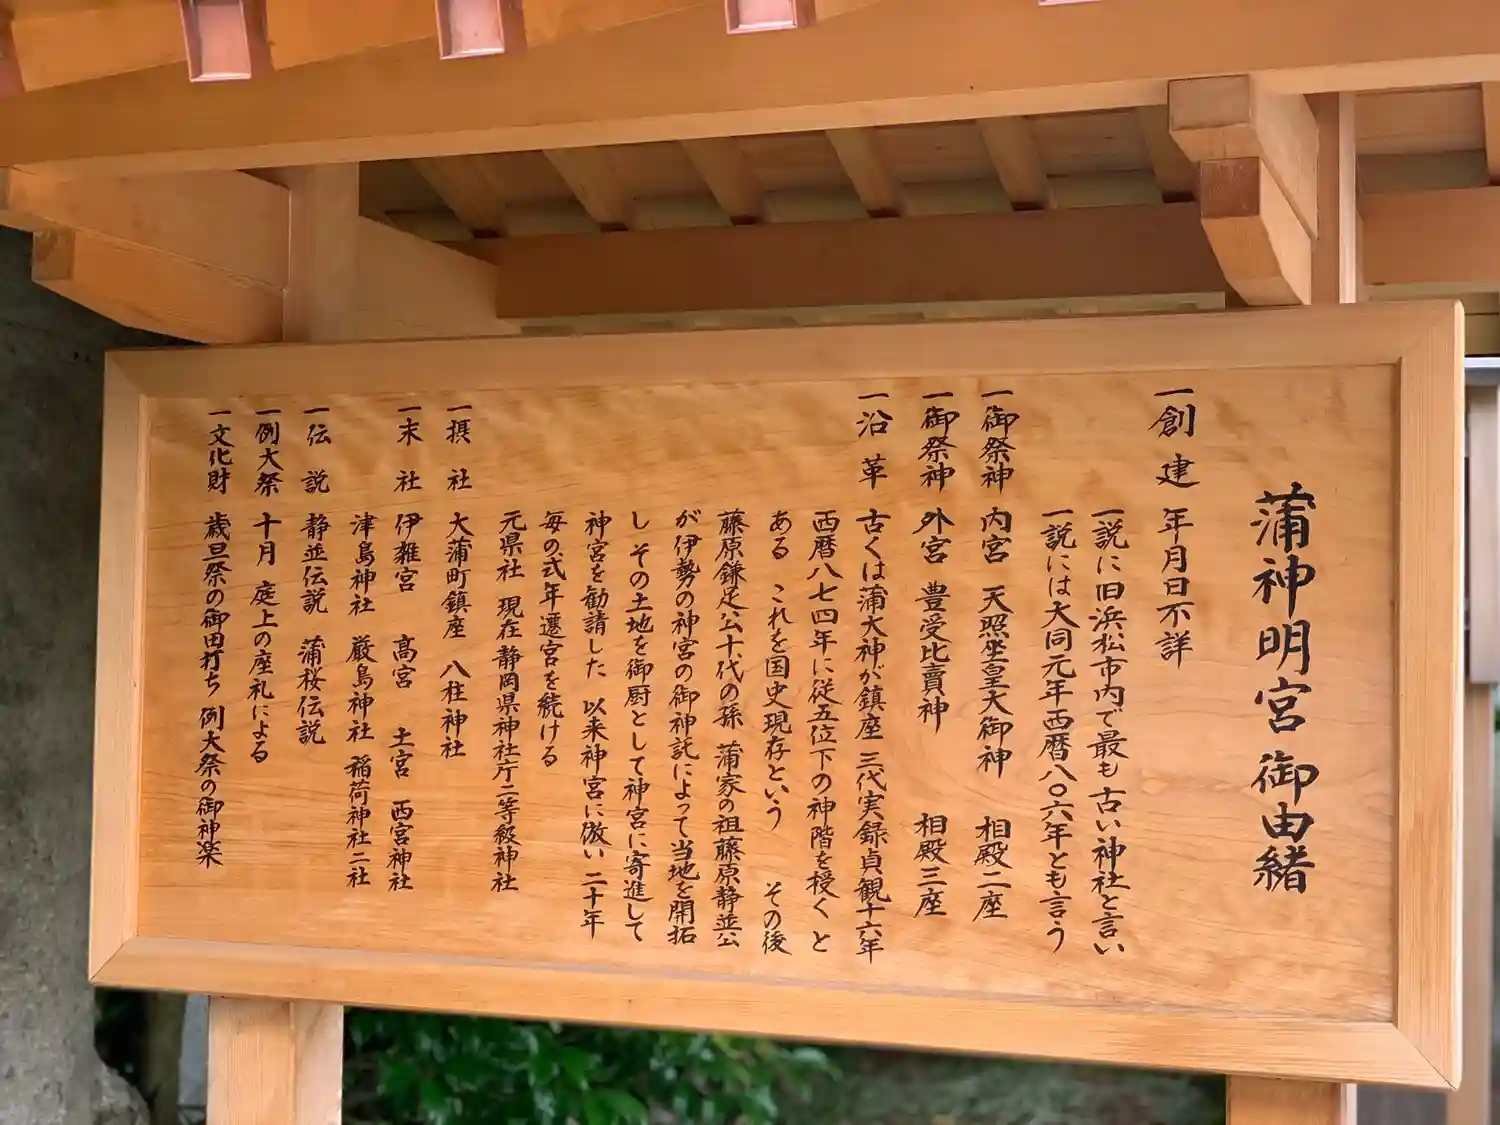 蒲神明宮 御由緒
一創建 年月日不詳
一説に旧浜松市内で最も古い神社と言い
一説には大同元年西暦八〇六年とも言う
一御祭神 内宮 天照坐皇大御神 相殿二座
一御祭神 外宮 豊受比賣神 相殿三座
一沿革 古くは蒲大神が鎮座 三代実録貞観十六年
西暦八七四年に従五位下の神階を授くと
ある これを国史現存という その後
藤原鎌足公十代の孫 蒲家の祖藤原静並公
が伊勢の神宮の御神託によって当地を開拓
し その土地を御厨として神宮に寄進して
神宮を勧請した 以来神宮に倣い 二十年
毎の式年遷宮を続ける
元県社 現在静岡県神社庁二等級神社
一摂社 大蒲町鎮座 八柱神社
一末社 伊雑宮 高宮 土宮 西宮神社
津島神社 厳島神社 稲荷神社二社
一伝説 静並伝説 蒲桜伝説
一例大祭 十月 庭上の座礼による
一文化財 歳旦祭の御田打ち 例大祭の御神楽